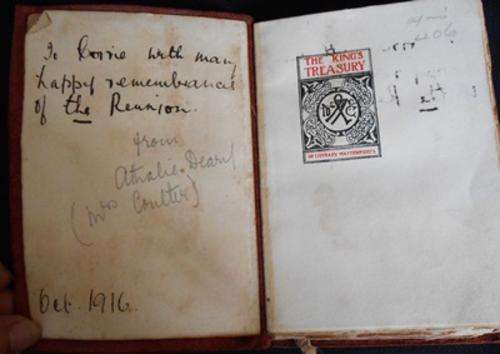 To Connie with many
happy remembrances
of the Reunion.
from
Athalie Dearl
(Mrs Coulter)
Oct. 1916.
THE KING'S
TREASURY
OF LITERARY MASTERPIECES